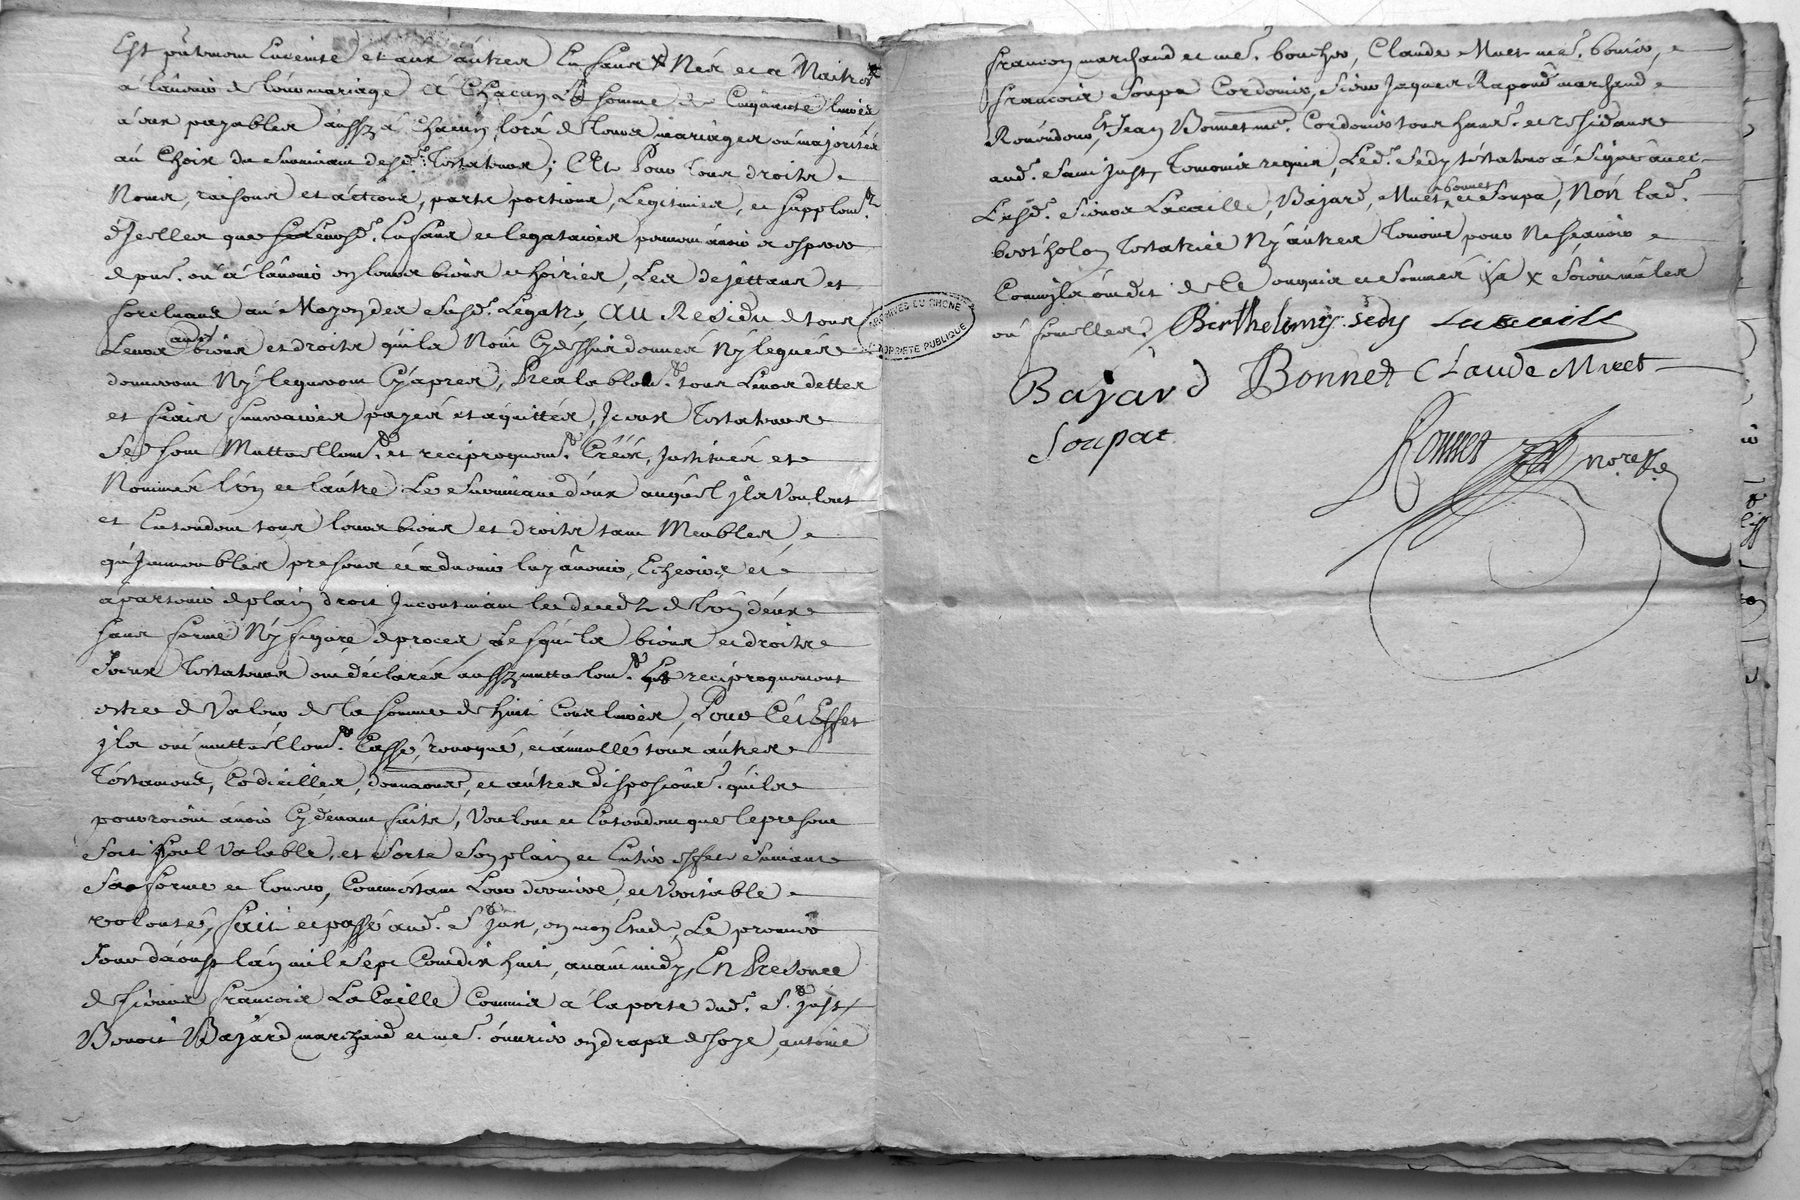 Est pñtemem Enceinte et aux autres Enfans Nés et a Naitre
a l'avenir de leur mariage a Chacun La somme de Cinquante livres
a eux payables aussy a Chacun lors de leurs mariages ou majorités
au Choix du Survivant desd. Testateurs; Et Pour tous droits
Noms, raisons et actions, parts portions, Legitimes, et supplem.t
d'Jcelles que lesusd. Enfans et legataires peuvent avoir et esperer
de pnt. ou a l'avenir en leurs biens et hoiries, Les dejettans et
forcluans au Moyen des susd. Legats, Au Residu de tous
Leurs autres biens et droits qu'ils N'ont Cydessus donnés Ny legués
donneront Ny legueront Cyapres, Prealablem.t tous Leurs dettes
et frais funeraires payés et aquittés, Jceux Testateurs
Se sont Mutuellem.t et reciproquem.t Créés, Jnstitués et
Nommés l'un et l'autre Le Survivant d'eux auquel jls Veulent
et Entendent tous leurs biens et droits tant Meubles,
qu'Jmmeubles presens et advenir luy avenir, Echeoir et
apartenir de plain droit Jncontinant le deced de l'un d'eux
sans forme Ny figure de procez, Lesquels biens et droits
Jceux Testateurs ont déclarés aussy mutuelem.t et reciproquement
estre de Valeur de la somme de huit Cens livres, Pour Cet Effet
jls ont mutuellem.t Cassé, revoqué, et annullé tous autres
Testamens, Codicilles, donnaons, et autres disposions. qu'ils
pourroient avoir Cydevant faits, Veulent et Entendent que le present
soit seul Valable, et sorte son plain et Entier effet suivant
sa forme et teneur, Comme Etant Leur derniere, et Veritable
volonté, fait et passé aud. St Just, en mon Etude, Le premier
Jour d'aoust l'an mil Sept Cent dix huit, avant midy, En Presence
de sieurs françois La Caille Commis a la porte dud. St Just,
Benoit Bajard marchand et me. ouvrier en draps de soye, antoine
françon marchand et me. boucher, Claude Muet me. boucher,
françois Soupa Cordonier, sieur Jaques Rapoud marchand
Revendeur, Et Jean Bonnet me. Cordonier tous habit. et residants
aud. Saint Just, Temoins requis, Led. Sedy testateur a signé avec
Lesd. sieurs Lacaille, Bajard, Muet, Bonnet et Soupa, Non lad.
bertholon Testatrice Ny autres Temoins pour Ne sçavoir
Comm'jls ont dit de Ce enquis et sommés
Berthelemy Sedy Lacaille
Bajard Bonnet Claude Muet
Soupat
Bonnet No.re R.
ARCHIVES DU RHONE
PROPRIETE PUBLIQUE